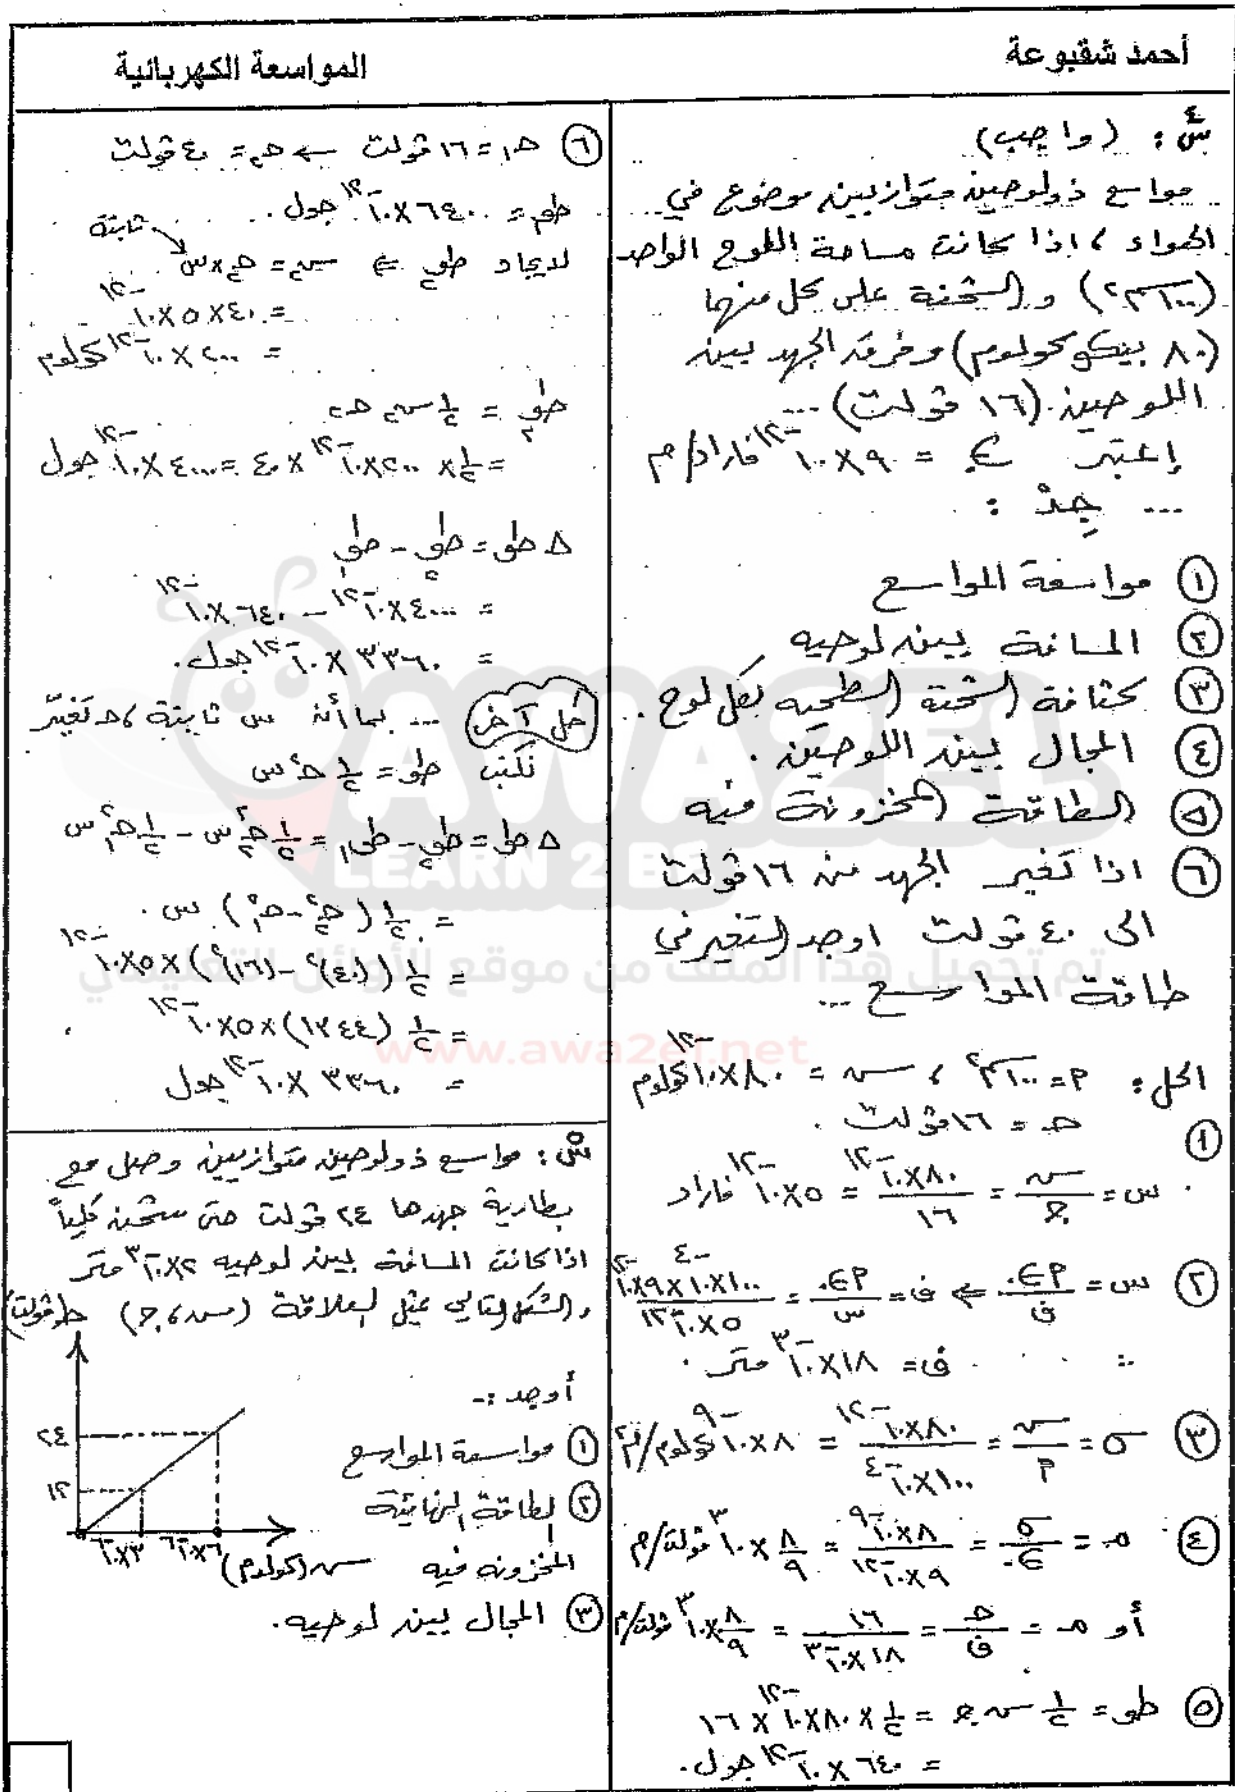 أحمد شقبوعة
المواسعة الكهربائية
س٤: (واجب)
مواسع ذو لوحين متوازيين موضوع في
الهواء، اذا كانت مساحة اللوح الواحد
(١٠٠سم٢) والشحنة على كل منهما
(٨٠ بيكو كولوم) وفرق الجهد بين
اللوحين (١٦ ڤولت) ...
إعتبر ∈. = ٩×١٠^-١٢ فاراد/م
... جِدْ :
① مواسعة المواسع
② المسافة بين لوحيه
③ كثافة الشحنة السطحية لكل لوح.
④ المجال بين اللوحين.
⑤ الطاقة المخزونة فيه
⑥ اذا تغير الجهد من ١٦ ڤولت
الى ٤٠ ڤولت اوجد التغير في
طاقة المواسع ...
الحل: P = ١٠٠سم٢، سـ = ٨٠×١٠^-١٢ كولوم
جـ = ١٦ ڤولت.
① س = سـ/جـ = ٨٠×١٠^-١٢/١٦ = ٥×١٠^-١٢ فاراد
② س = P∈./ف ⇐ ف = P∈./س = ١٠٠×١٠^-٤×٩×١٠^-١٢/٥×١٠^-١٢
ف = ١٨×١٠^-٣ متر.
③ σ = سـ/P = ٨٠×١٠^-١٢/١٠٠×١٠^-٤ = ٨×١٠^-٩ كولوم/م٢
④ مـ = σ/∈. = ٨×١٠^-٩/٩×١٠^-١٢ = ٨/٩×١٠^٣ ڤولت/م
أو مـ = جـ/ف = ١٦/١٨×١٠^-٣ = ٨/٩×١٠^٣ ڤولت/م
⑤ طو = ١/٢ سـ جـ = ١/٢×٨٠×١٠^-١٢×١٦
= ٦٤٠×١٠^-١٢ جول.
⑥ جـ١ = ١٦ ڤولت ← جـ٢ = ٤٠ ڤولت
طو١ = ٦٤٠×١٠^-١٢ جول.
لايجاد طو٢ ⇐ سـ٢ = جـ٢×س ثابتة
= ٤٠×٥×١٠^-١٢
= ٢٠٠×١٠^-١٢ كولوم
طو٢ = ١/٢ سـ٢ جـ٢
= ١/٢×٢٠٠×١٠^-١٢×٤٠ = ٤٠٠٠×١٠^-١٢ جول
Δطو = طو٢ - طو١
= ٤٠٠٠×١٠^-١٢ - ٦٤٠×١٠^-١٢
= ٣٣٦٠×١٠^-١٢ جول.
حل آخر ... بما أن س ثابتة، جـ تغيّر
نكتب طو = ١/٢ جـ٢ س
Δطو = طو٢ - طو١ = ١/٢ جـ٢^٢ س - ١/٢ جـ١^٢ س
= ١/٢ (جـ٢^٢ - جـ١^٢) س.
= ١/٢ ((٤٠)^٢ - (١٦)^٢)×٥×١٠^-١٢
= ١/٢ (١٣٤٤)×٥×١٠^-١٢
= ٣٣٦٠×١٠^-١٢ جول
س٥: مواسع ذو لوحين متوازيين وصل مع
بطارية جهدها ٢٤ ڤولت حتى شحن كلياً
اذا كانت المسافة بين لوحيه ٢×١٠^-٣ متر
والشكل التالي يمثل العلاقة (سـ، جـ)
جـ(ڤولت)
أوجد :-
٢٤
① مواسعة المواسع
١٢
② الطاقة النهائية
المخزونه فيه
٣×١٠^-٦
٦×١٠^-٦
سـ(كولوم)
③ المجال بين لوحيه.
AWA2EL
LEARN 2 BE
تم تحميل هذا الملف من موقع الأوائل التعليمي
www.awa2el.net